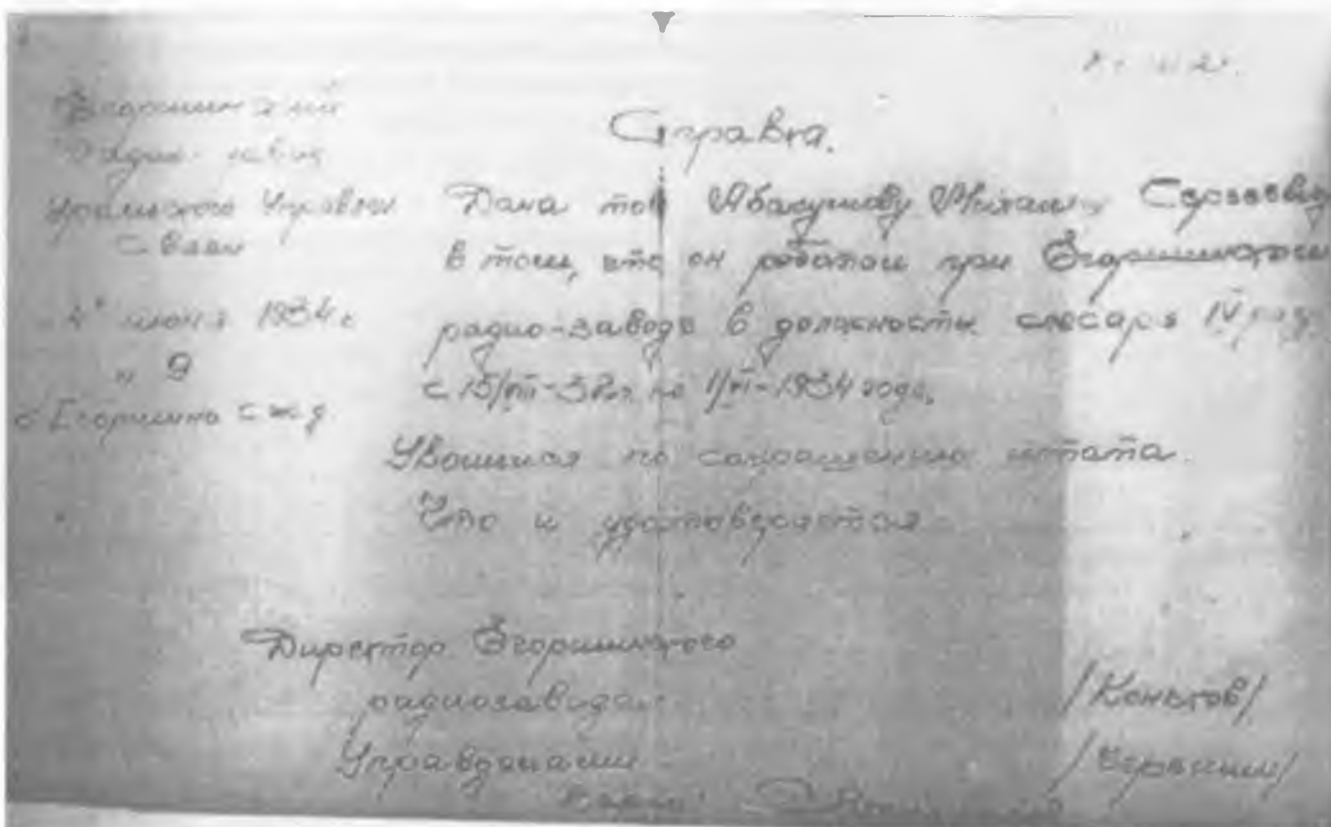 Справка.
Егоршинский
Радио-завод
Уральского Управлен
Связи
4" июня 1934 г
н 9
Егоршино ж.д.
Дана тов Абакумову Михаилу Сергеевичу
в том, что он работал при Егоршинском
радио-заводе в должности слесаря IV раз.
по 1/VI-1934 года.
Уволился по сокращению штата.
Что и удостоверяется
Директор Егоршинского
радиозавода
Управделами
/Коньков/